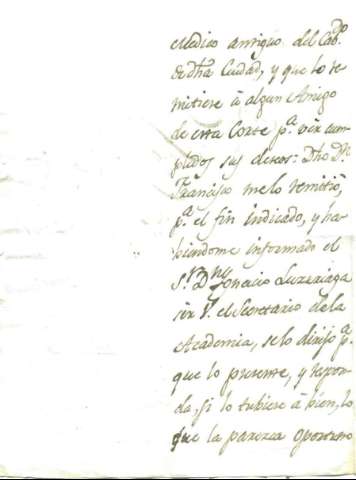 Medico antiguo del Cab.do
de dha Ciudad, y que lo re-
mitiese à algun Amigo
de esta Corte p.a ver cum-
plidos sus deseos: Dho D.n
Francisco me lo remitió,
p.a el fin indicado, y ha-
biendome informado el
S.r D.n Ygnacio Luzuriaga
ser V. el Secretario de la
Academia, se lo dirijo p.a
que lo presente, y respon-
da, si lo tubiere à bien, lo
que la parezca oportuno